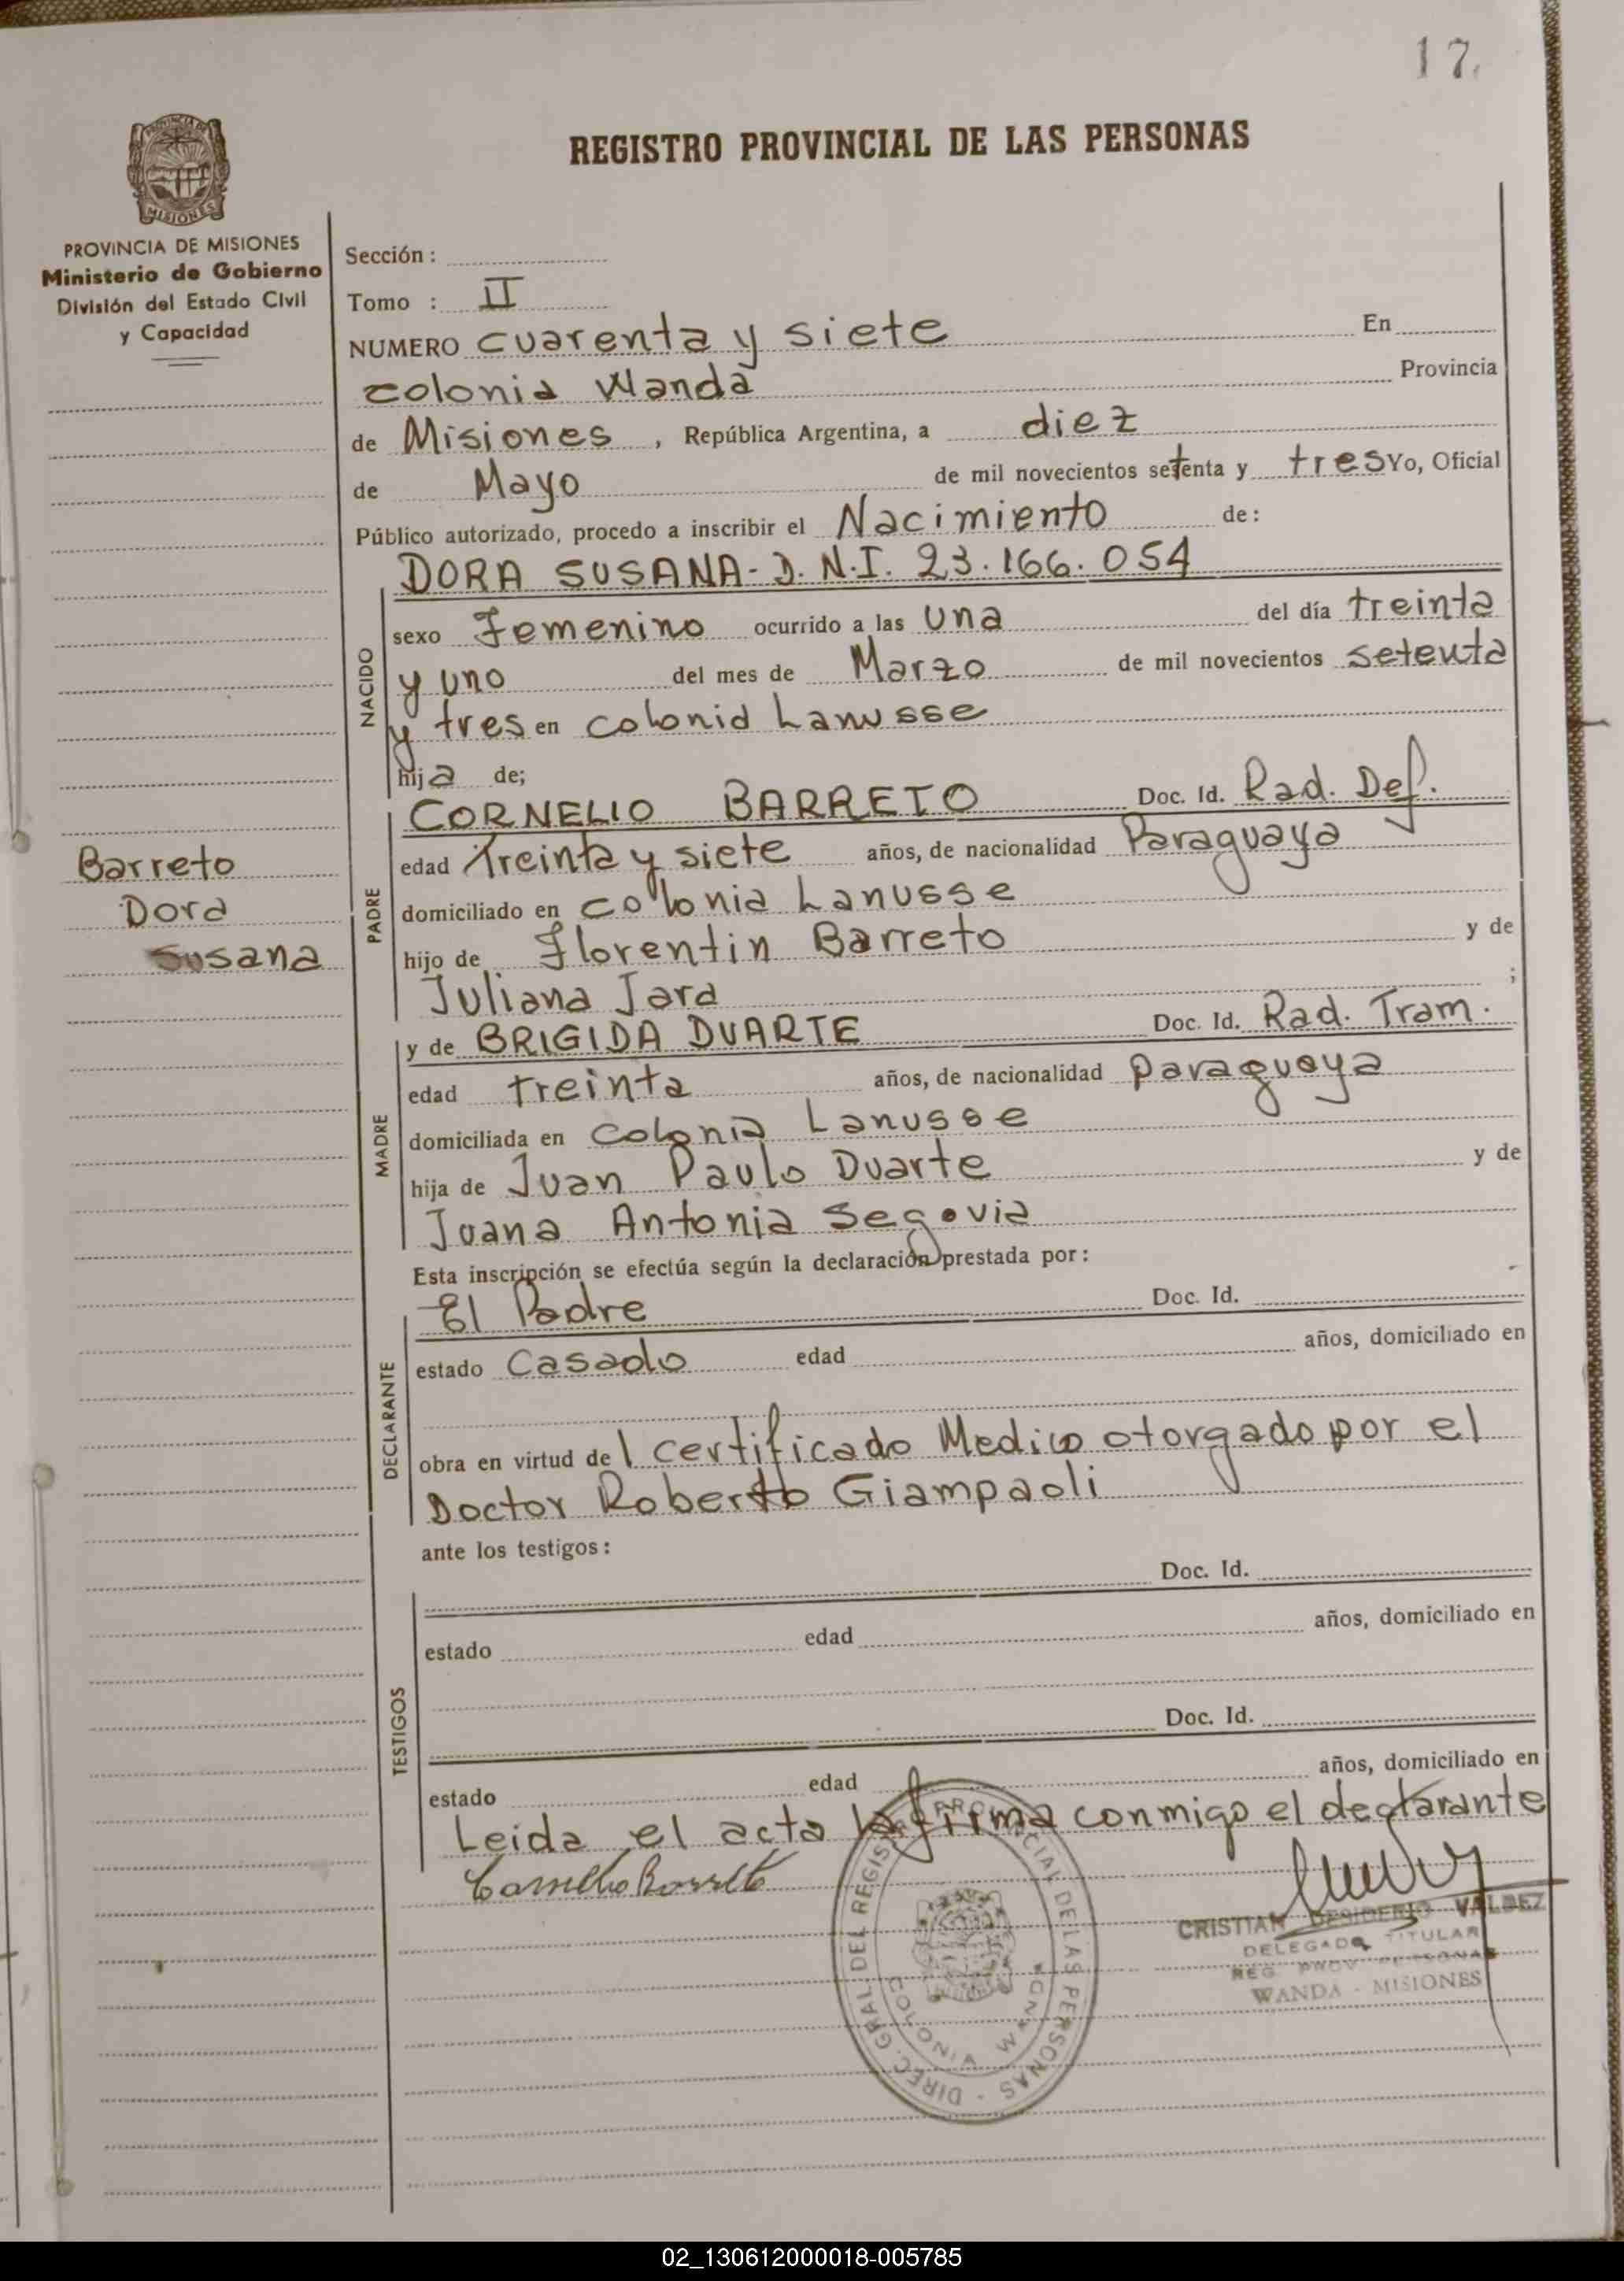 17.
PROVINCIA DE MISIONES
Ministerio de Gobierno
División del Estado Civil
y Capacidad
REGISTRO PROVINCIAL DE LAS PERSONAS
Sección :
Tomo : II
NUMERO cuarenta y siete En
colonia Wanda Provincia
de Misiones, República Argentina, a diez
de Mayo de mil novecientos setenta y tres Yo, Oficial
Público autorizado, procedo a inscribir el Nacimiento de:
DORA SUSANA - D.N.I. 23.166.054
NACIDO
sexo Femenino ocurrido a las una del día treinta
y uno del mes de Marzo de mil novecientos setenta
y tres en colonia Lanusse
hija de;
PADRE
CORNELIO BARRETO Doc. Id. Rad. Def.
edad Treinta y siete años, de nacionalidad Paraguaya
domiciliado en colonia Lanusse
hijo de Florentin Barreto y de
Juliana Jara ;
Barreto
Dora
Susana
MADRE
y de BRIGIDA DUARTE Doc. Id. Rad. Tram.
edad treinta años, de nacionalidad paraguaya
domiciliada en colonia Lanusse
hija de Juan Paulo Duarte y de
Juana Antonia Segovia
Esta inscripción se efectúa según la declaración prestada por :
DECLARANTE
El Padre Doc. Id.
estado Casado edad años, domiciliado en
obra en virtud del certificado Medico otorgado por el
Doctor Roberto Giampaoli
ante los testigos :
TESTIGOS
Doc. Id.
estado edad años, domiciliado en
Doc. Id.
estado edad años, domiciliado en
Leida el acta la firma conmigo el declarante
Cornelio Barreto
DIREC. GRAL. DEL REGISTRO PROVINCIAL DE LAS PERSONAS
COLONIA WANDA
CRISTIAN DESIDERIO VALDEZ
DELEGADO TITULAR
REG. PROV. PERSONAS
WANDA - MISIONES
02_130612000018-005785